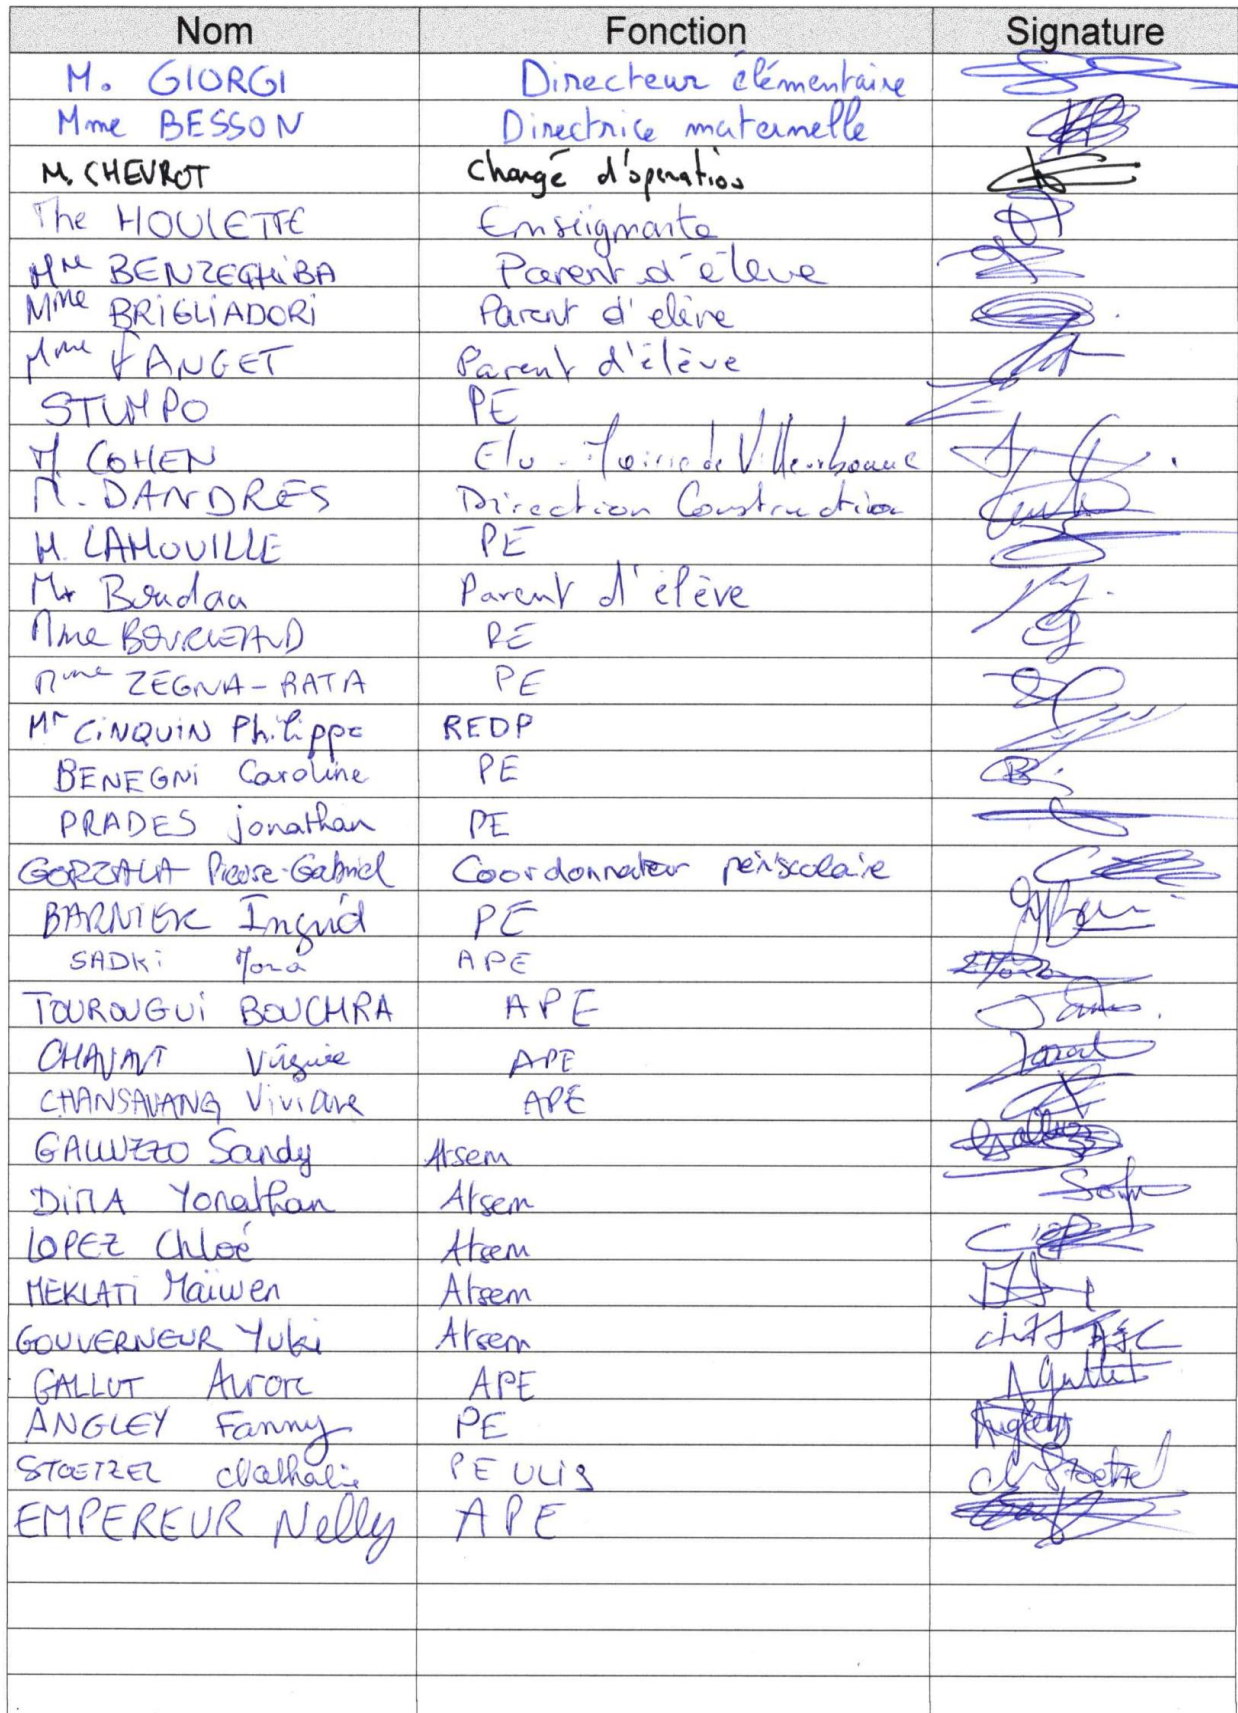 Nom Fonction Signature
M. GIORGI Directeur élémentaire
Mme BESSON Directrice maternelle
M. CHEVROT Chargé d'opération
HOULETTE Enseignante
BENZEGHIBA Parent d'éleve
Mme BRIGLIADORI Parent d'elève
Mme FANGET Parent d'élève
STUMPO PE
M. COHEN Elu - Mairie de Villeurbanne
M. DANDRES Direction Construction
M. LAMOUILLE PE
Mr Parent d'élève
Mme PE
Mme ZEGNA-RATA PE
Mr CINQUIN Philippe REDP
BENEGNI Caroline PE
PRADES jonathan PE
Pierre-Gabriel Coordonnateur périscolaire
BARNIER Ingrid PE
SADKi APE
TOUROUGUI BOUCHRA APE
CHAVANT Virginie APE
CHANSAVANG Viviane APE
GALLUZZO Sandy Atsem
DIMA Yonathan Atsem
LOPEZ Chloé Atsem
MEKLATI Maïwen Atsem
GOUVERNEUR Yuki Atsem
GALLUT Aurore APE A Gallut
ANGLEY Fanny PE Angley
STOETZEL Nathalie PE ULIS N Stoetzel
EMPEREUR Nelly APE